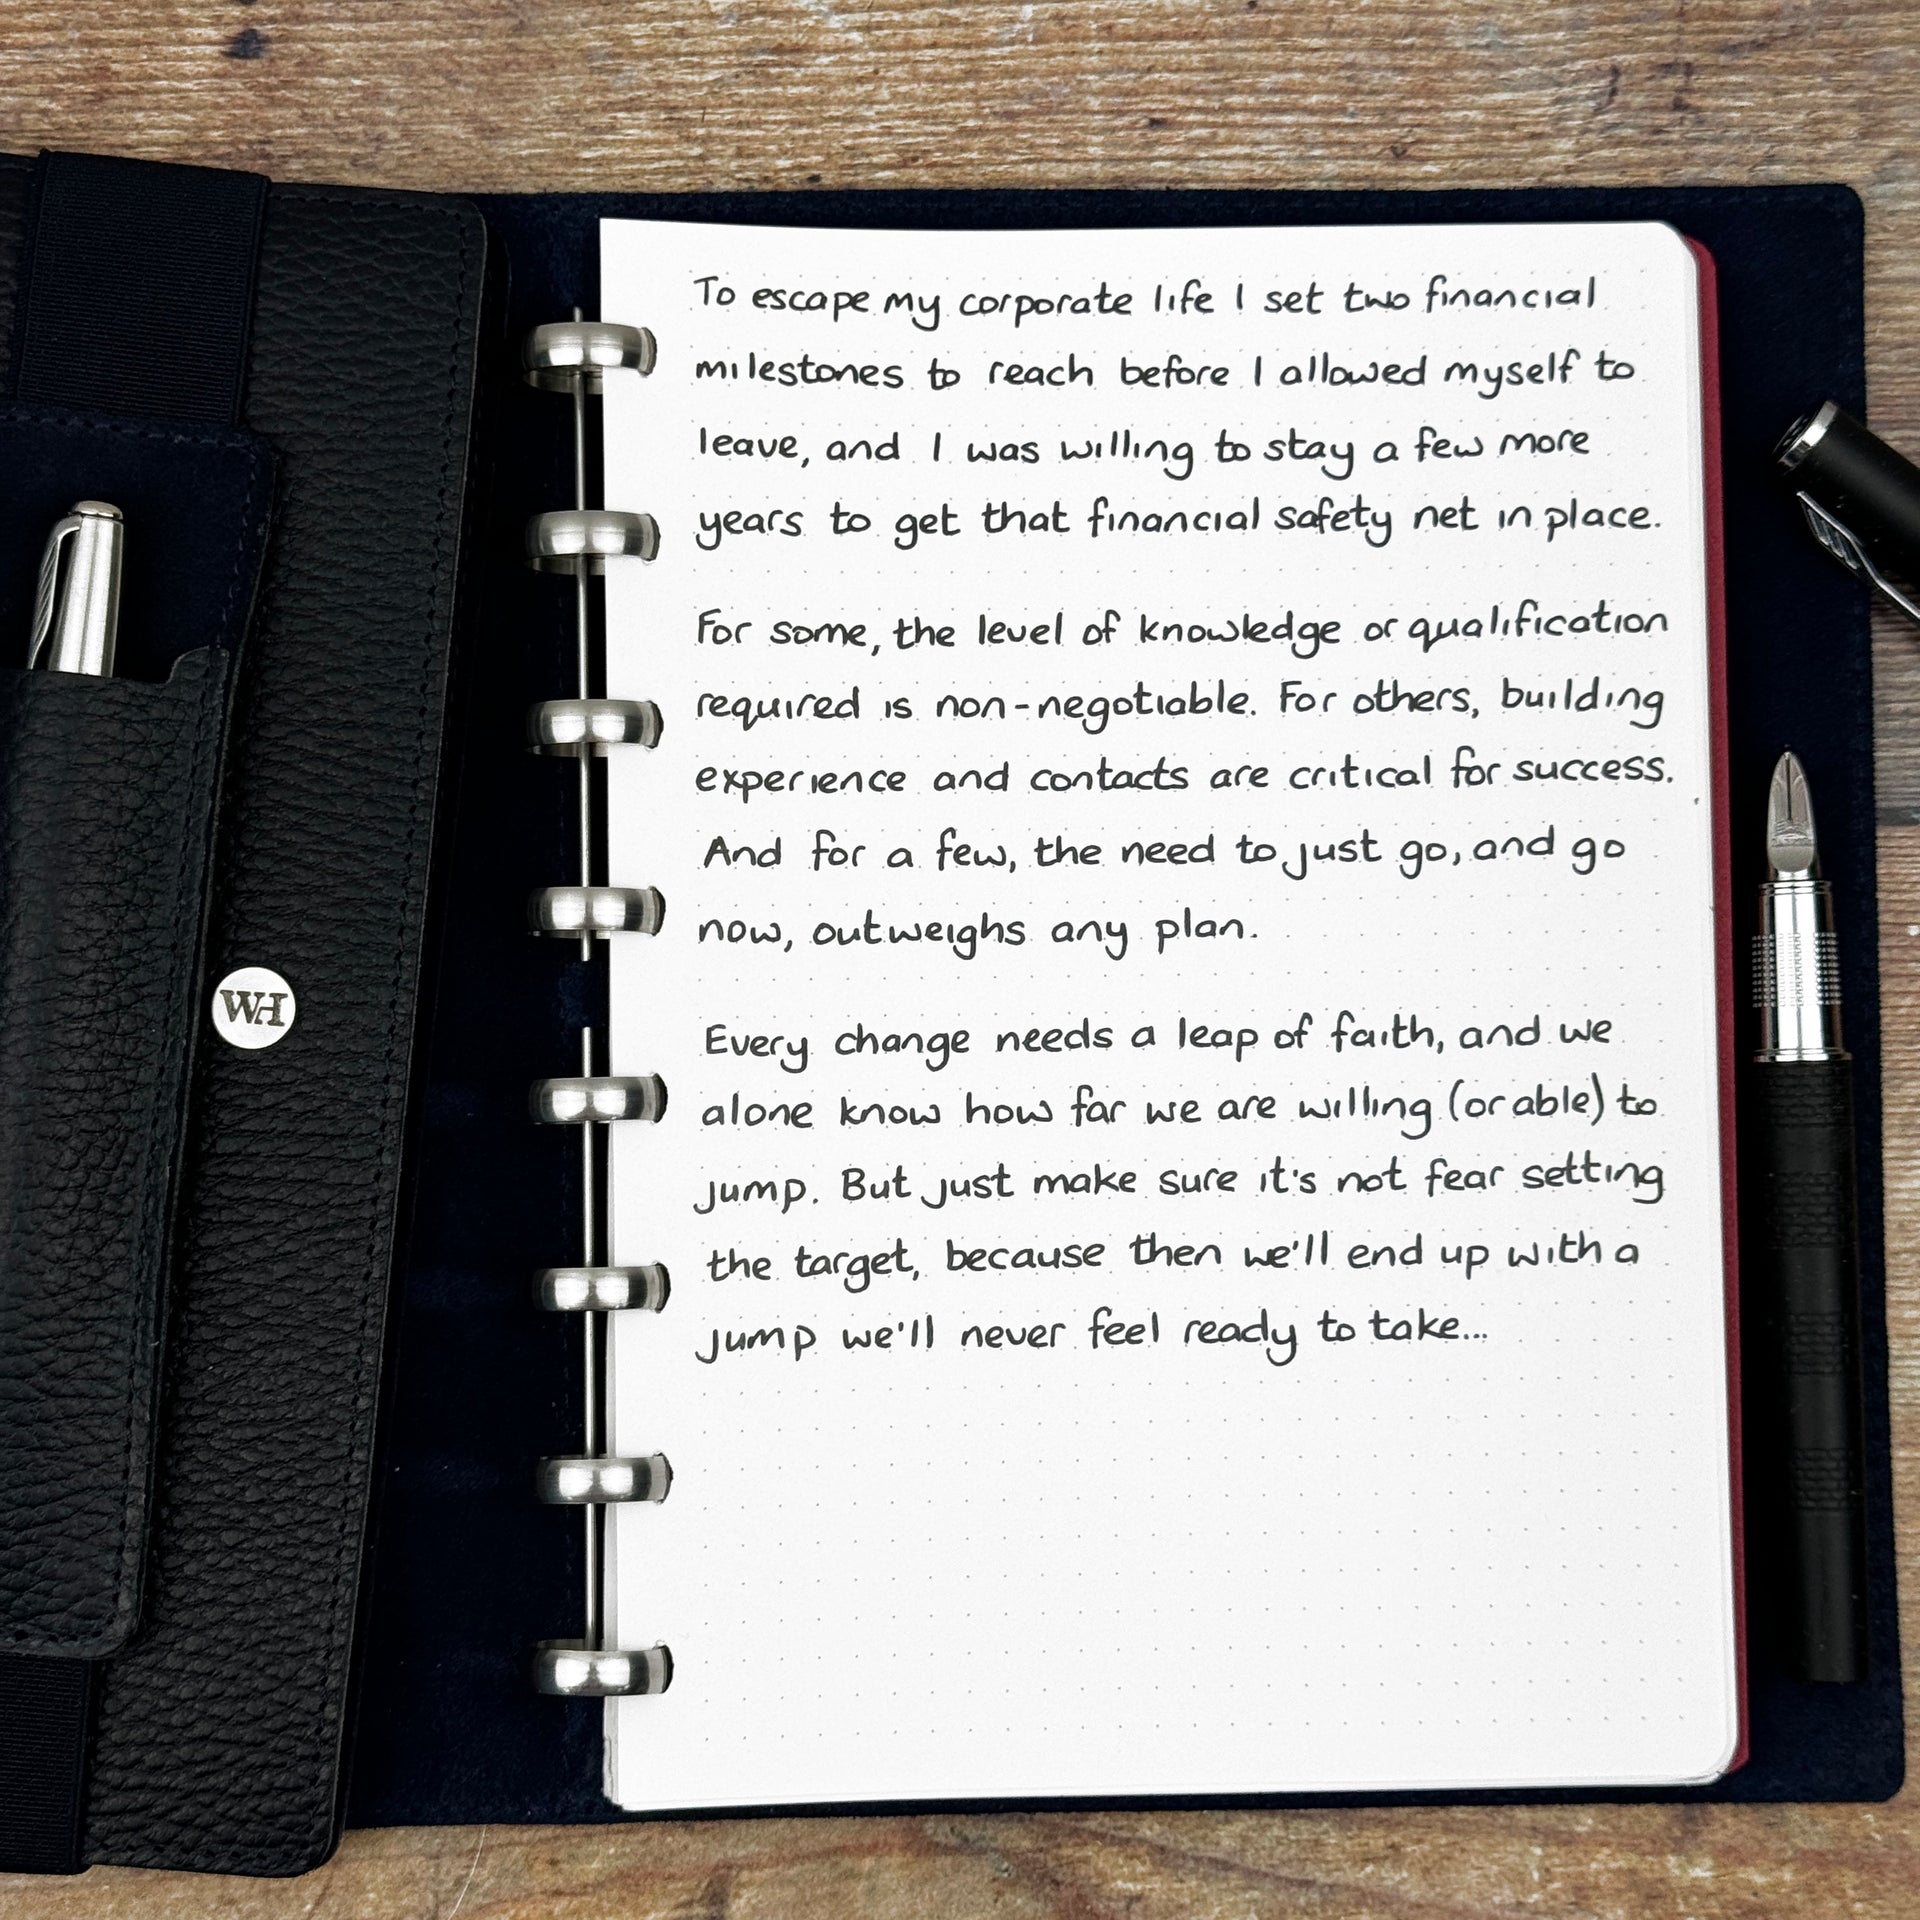 To escape my corporate life I set two financial
milestones to reach before I allowed myself to
leave, and I was willing to stay a few more
years to get that financial safety net in place.
For some, the level of knowledge or qualification
required is non-negotiable. For others, building
experience and contacts are critical for success.
And for a few, the need to just go, and go
now, outweighs any plan.
Every change needs a leap of faith, and we
alone know how far we are willing (or able) to
jump. But just make sure it's not fear setting
the target, because then we'll end up with a
jump we'll never feel ready to take...
WH